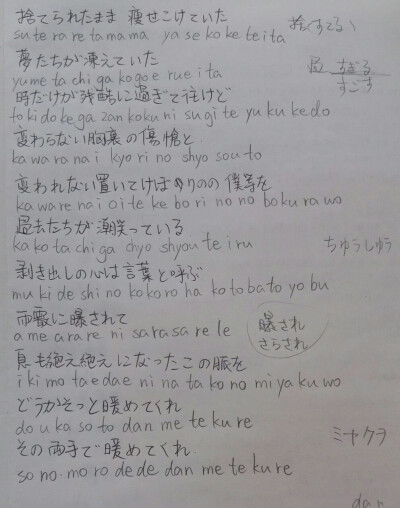 捨てられたまま 痩せこけていた
su te ra re ta ma ma ya se ko ke te i ta
捨(すてる)
夢たちが凍えていた
yu me ta chi ga ko go e rue i ta
時だけが残酷に過ぎて往けど
to ki do ke ga zan ko ku ni su gi te yu ku ke do
すぎる
すごす
変わらない胸裏の傷愴と
ka wa ra na i kyo ri no shyo sou to
変われない置いてけぼりのの僕等を
ka wa re na i o i te ke bo ri no no bo ku ra wo
過去たちが潮笑っている
ka ko ta chi ga chyo shyou te i ru
ちゅうしゅう
剥き出しの心は言葉と呼ぶ
mu ki de shi no ko ko ro ha ko to ba to yo bu
雨霰に曝されて
a me a ra re ni sa ra sa re le
曝され
さらされ
息も絶え絶えになったこの脈を
i ki mo ta e da e ni na ta ko no mi ya ku wo
どうかそっと暖めてくれ
do u ka so to dan me te ku re
ミヤクヲ
その両手で暖めてくれ
so no mo ro de de dan me te ku re
dan